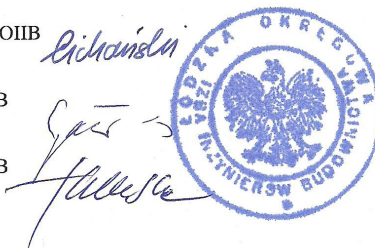 OIIB
Cichoński
B
B
ŁÓDZKA OKRĘGOWA
IZBA INŻYNIERÓW BUDOWNICTWA